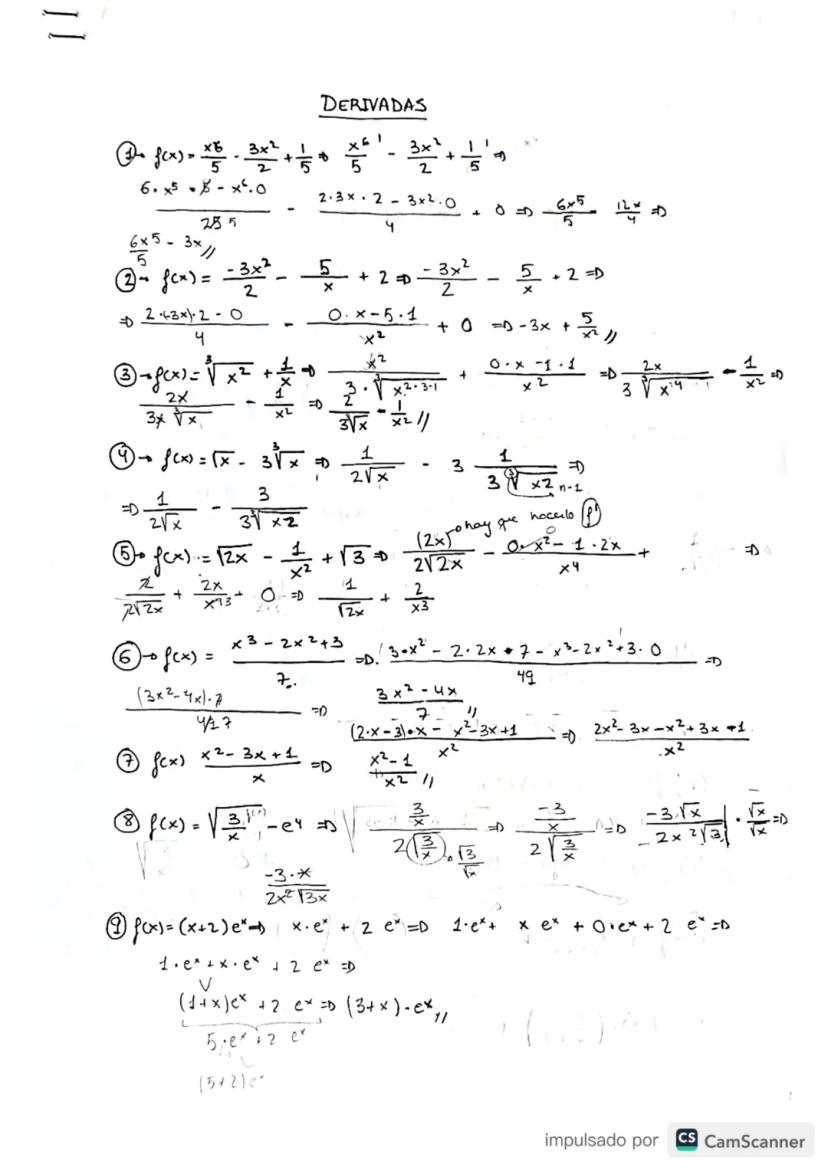 DERIVADAS
① → f(x) = x⁶/5 - 3x²/2 + 1/5 ⇒ x⁶'/5 - 3x²'/2 + 1'/5 ⇒
(6·x⁵·5 - x⁶·0)/25 5 - (2·3x·2 - 3x²·0)/4 + 0 ⇒ 6x⁵/5 - 12x/4 ⇒
6x⁵/5 - 3x //
② → f(x) = -3x²/2 - 5/x + 2 ⇒ -3x²/2 - 5/x + 2 ⇒
⇒ (2·(-3x)·2 - 0)/4 - (0·x - 5·1)/x² + 0 ⇒ -3x + 5/x² //
③ → f(x) = ∛x² + 1/x ⇒ x²/(3·∛x^2·3-1) + (0·x - 1·1)/x² ⇒ 2x/(3∛x⁴) - 1/x² ⇒
2x/(3x ∛x) - 1/x² ⇒ 2/(3∛x) - 1/x² //
④ → f(x) = √x - 3∛x ⇒ 1/(2√x) - 3 1/(3∛x2) n-1 ⇒
⇒ 1/(2√x) - 3/(3∛x2)
hay que hacerlo f'
⑤ → f(x) = √2x - 1/x² + √3 ⇒ (2x)/(2√2x) - (0·x² - 1·2x)/x⁴ + ⇒
2/(2√2x) + 2x/x⁴3 + 0 ⇒ 1/√2x + 2/x³
⑥ → f(x) = (x³ - 2x² + 3)/7 ⇒ (3·x² - 2·2x·7 - x³ - 2x² + 3·0)/49 ⇒
((3x² - 4x)·7)/49 7 ⇒ (3x² - 4x)/7 //
⑦ f(x) (x² - 3x + 1)/x ⇒ ((2·x - 3)·x - x² - 3x + 1)/x² ⇒ (2x² - 3x - x² + 3x + 1)/x²
(x² - 1)/x² //
⑧ f(x) = √(3/x) - e⁴ ⇒ (3/x)/(2√(3/x)) · √3/√x ⇒ (-3/x)/(2√(3/x)) ⇒ (-3·√x)/(2x²√3) · √x/√x ⇒
(-3·x)/(2x²√3x)
⑨ f(x) = (x+2)eˣ ⇒ x·eˣ + 2 eˣ ⇒ 1·eˣ + x eˣ + 0·eˣ + 2 eˣ ⇒
1·eˣ + x·eˣ + 2 eˣ ⇒
(1+x)eˣ + 2 eˣ ⇒ (3+x)·eˣ //
5·eˣ + 2 eˣ
(5+2)eˣ
impulsado por CS CamScanner